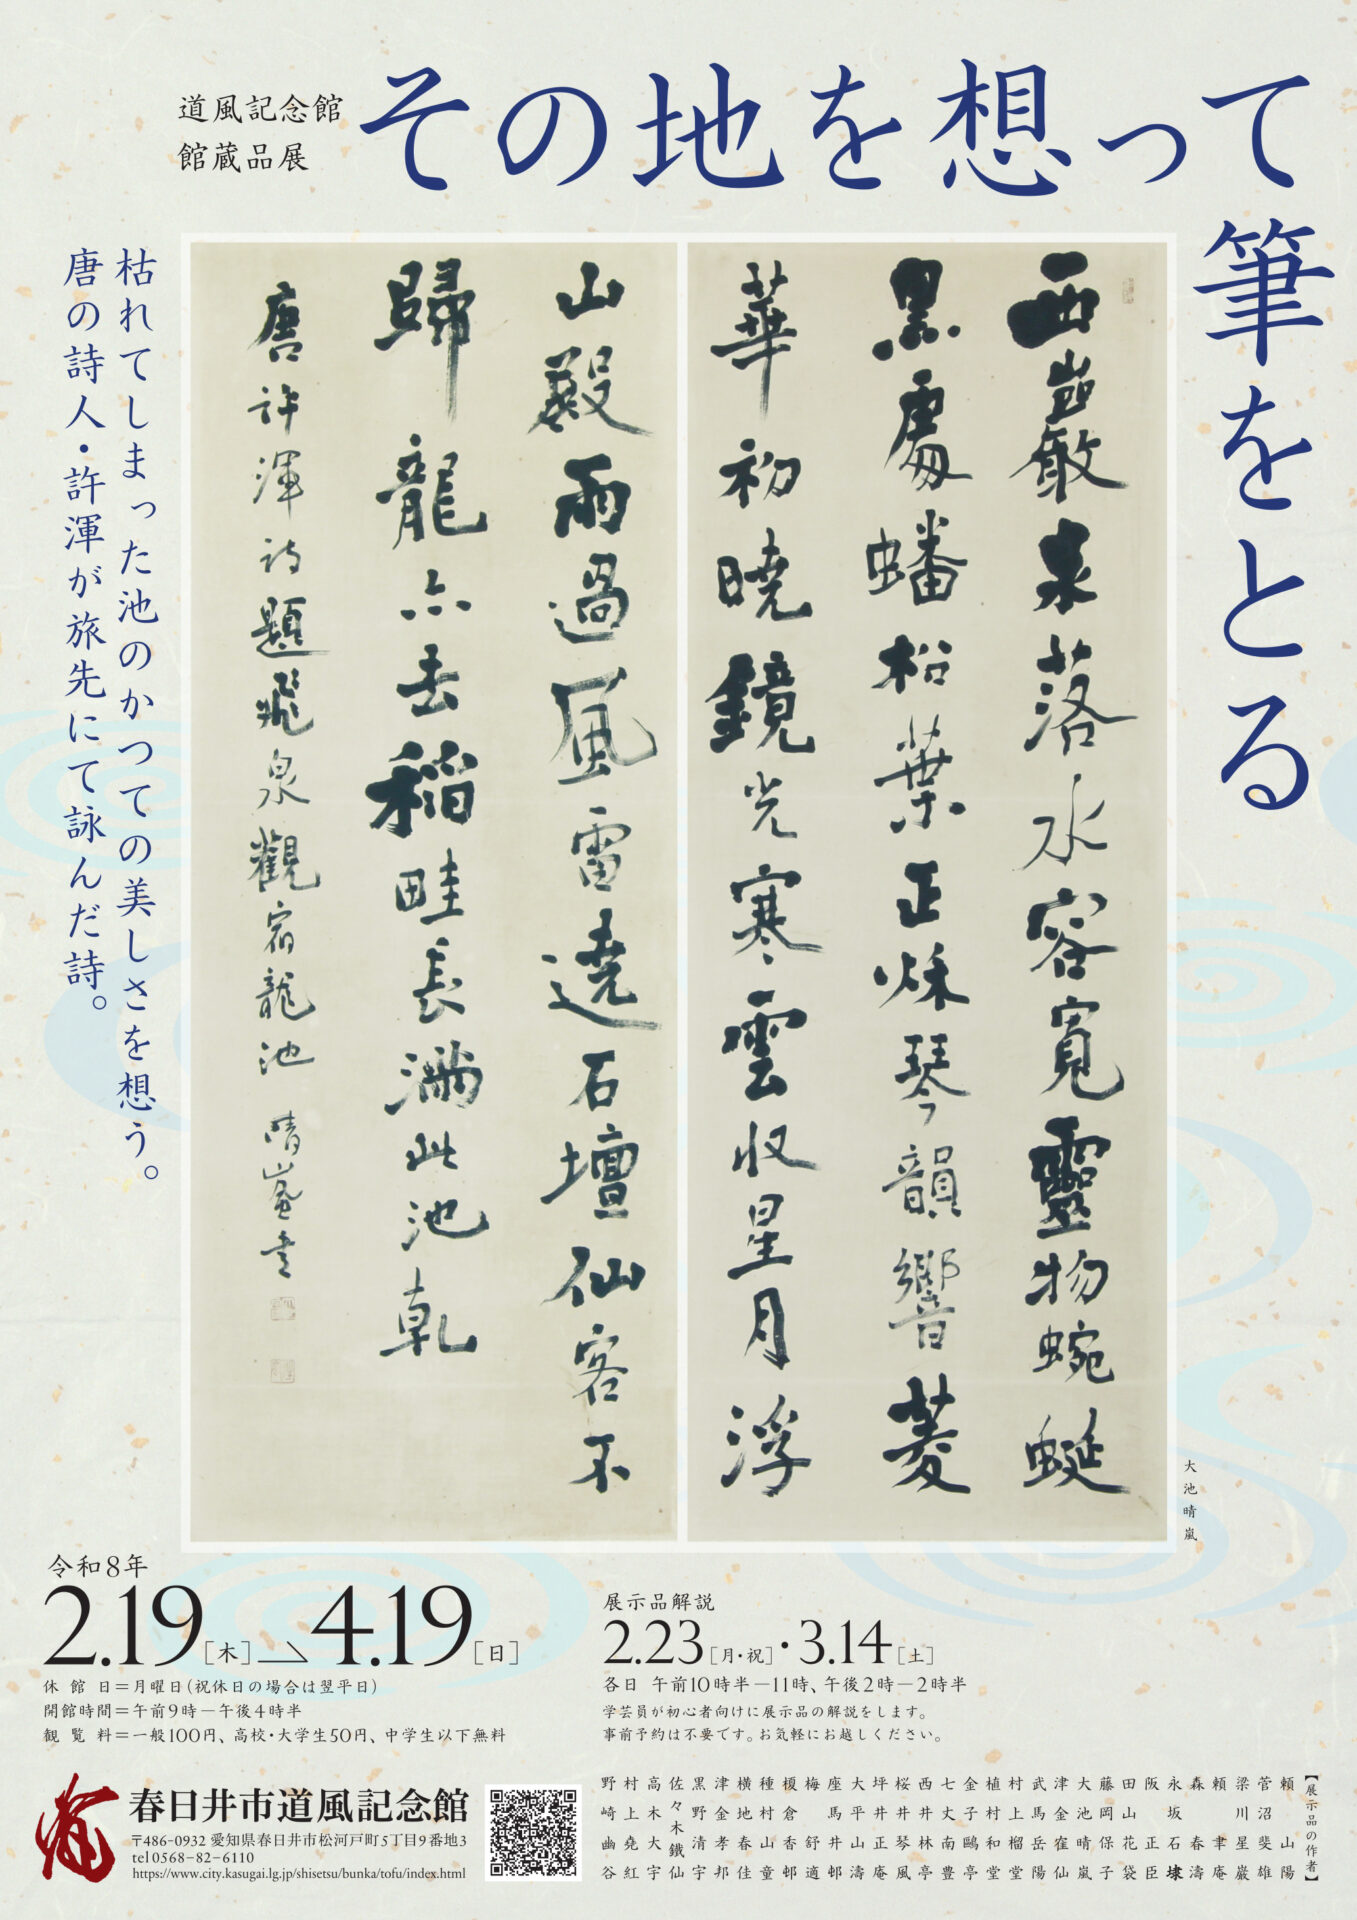 道風記念館
館蔵品展
その地を想って
筆をとる
枯れてしまった池のかつての美しさを想う。
唐の詩人・許渾が旅先にて詠んだ詩。
西巖泉落水容寬靈物蜿蜒
黒處蟠松葉正秌琴韻響菱
華初曉鏡光寒雲収星月浮
山殿雨過風雷遶石壇仙客不
歸龍亦去稲畦長満此池乾
唐許渾詩題飛泉觀宿龍池 晴嵐書
大池晴嵐
令和8年
2.19[木]→4.19[日]
休館日＝月曜日(祝休日の場合は翌平日)
開館時間＝午前9時－午後4時半
観覧料＝一般100円、高校・大学生50円、中学生以下無料
展示品解説
2.23[月・祝]・3.14[土]
各日 午前10時半－11時、午後2時－2時半
学芸員が初心者向けに展示品の解説をします。
事前予約は不要です。お気軽にお越しください。
春日井市道風記念館
〒486-0932 愛知県春日井市松河戸町5丁目9番地3
tel 0568-82-6110
https://www.city.kasugai.lg.jp/shisetsu/bunka/tofu/index.html
【展示品の作者】
頼山陽
菅沼斐雄
梁川星巌
頼聿庵
森春濤
永坂石埭
阪正臣
田山花袋
藤岡保子
大池晴嵐
津金隺仙
武馬岳陽
村上榴堂
植村和堂
金子鷗亭
七丈南豊
西井林亭
桜井琴風
坪井正庵
大平山濤
座馬井邨
梅舒適
榎倉香邨
種村山童
横地春佳
津金孝邦
黒野清宇
佐々木鐵仙
高木大宇
村上堯紅
野崎幽谷